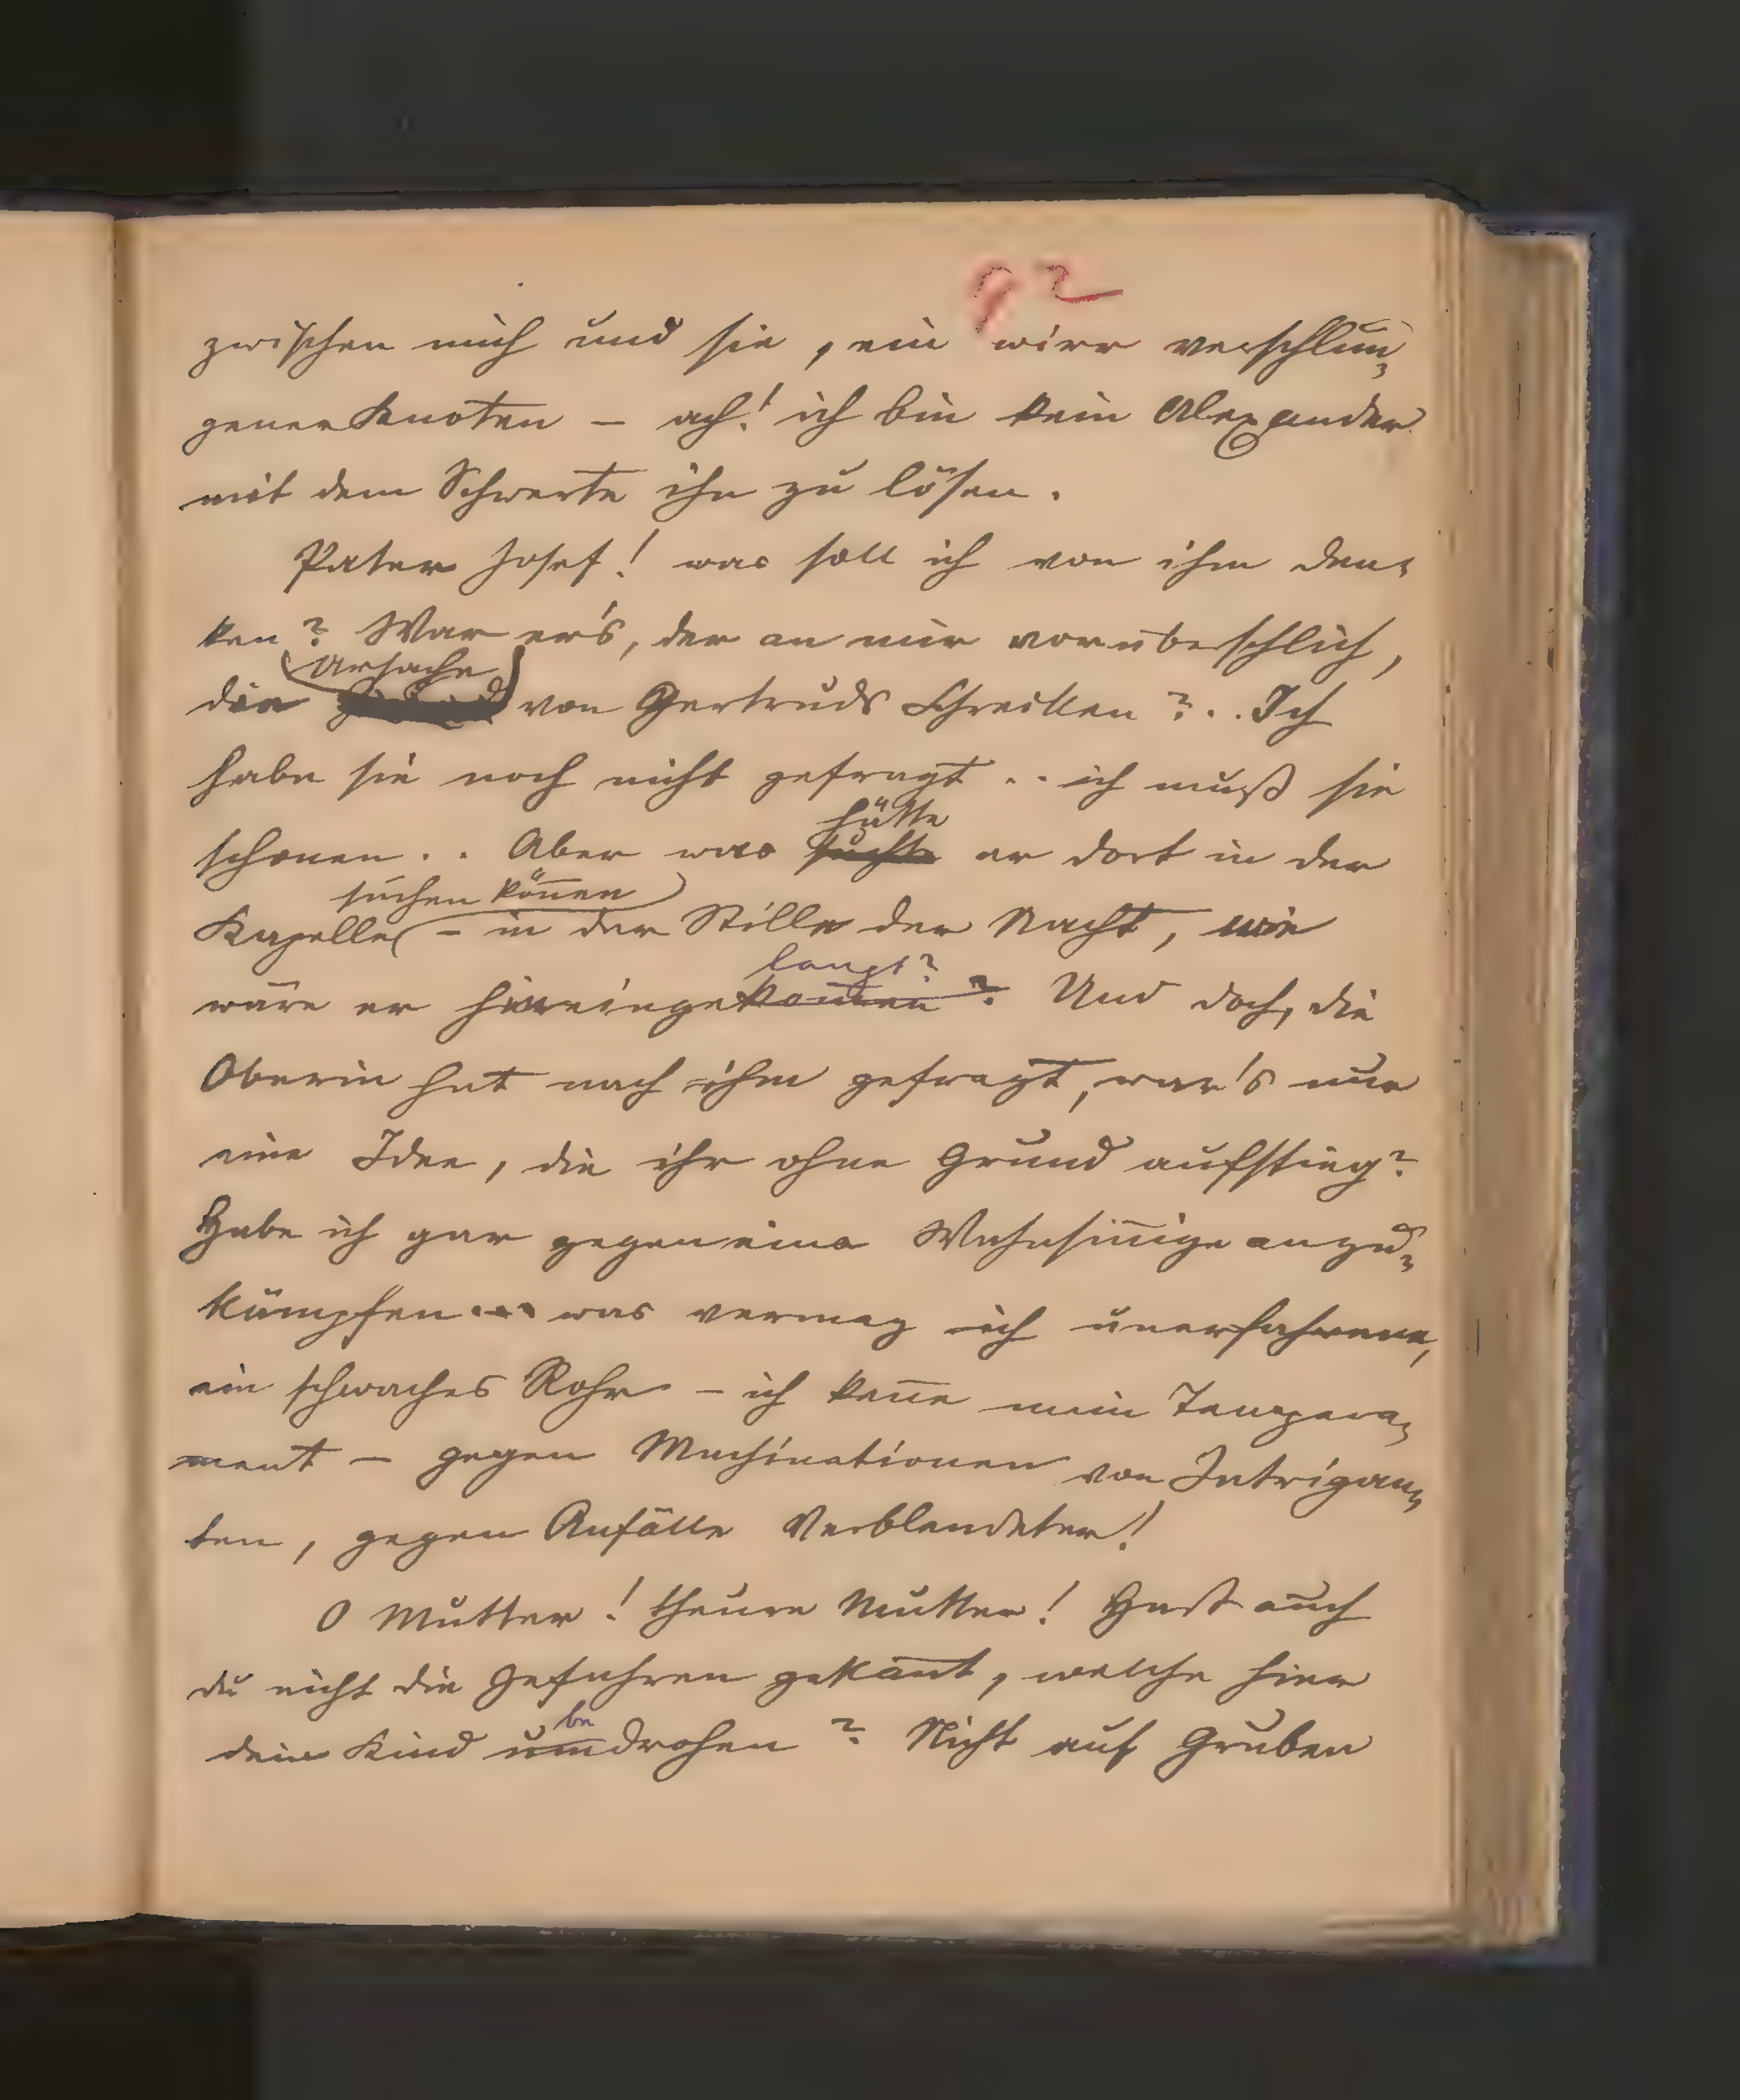 92
zwischen mich und sie, ein wirr verschlun-
gener Knoten – ach! ich bin kein Alexander
mit dem Schwerte ihn zu lösen.
Pater Josef! was soll ich von ihm den-
ken? War er's, der an mir vorüberschlich,
Ursache
die von Gertruds Schrecken?.. Ich
habe sie noch nicht gefragt .. ich muß sie
hätte
schonen.. Aber was suchte er dort in der
suchen kön̄en
Kapelle – in der Stille der Nacht, wie
langt?
wäre er hereingekom̄en? Und doch, die
Oberin hat nach ihm gefragt, war's nur
eine Idee, die ihr ohne Grund aufstieg?
Habe ich gar gegen eine Wahnsin̄ige anzu-
kämpfen... was vermag ich unerfahrene,
ein schwaches Rohr – ich ken̄e mein Tempera-
ment – gegen Machinationen von Intrigan-
ten, gegen Anfälle Verblendeter!
O Mutter! theure Mutter! Hast auch
du nicht die Gefahren gekan̄t, welche hier
be
dein Kind umdrohen? Nicht auf Gruben